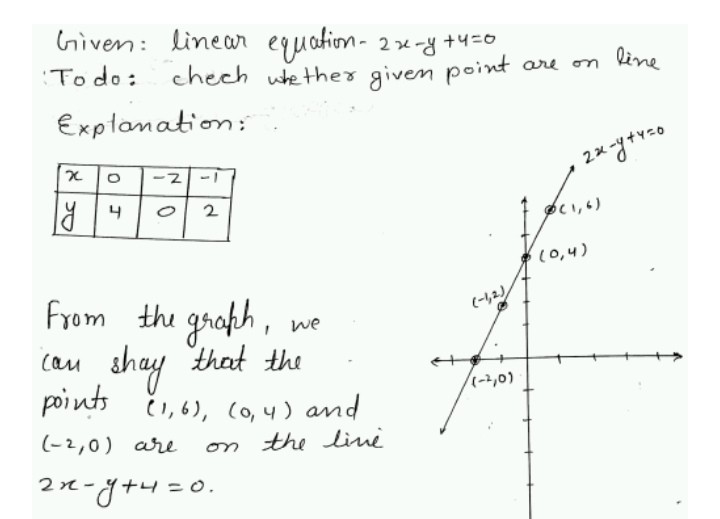 Given: linear equation- 2x-y+4=0
To do: chech whether given point are on line
Explanation:
x 0 -2 -1
y 4 0 2
2x-y+4=0
(1,6)
(0,4)
(-1,2)
(-2,0)
From the graph, we
can shay that the
points (1,6), (0,4) and
(-2,0) are on the line
2x-y+4=0.